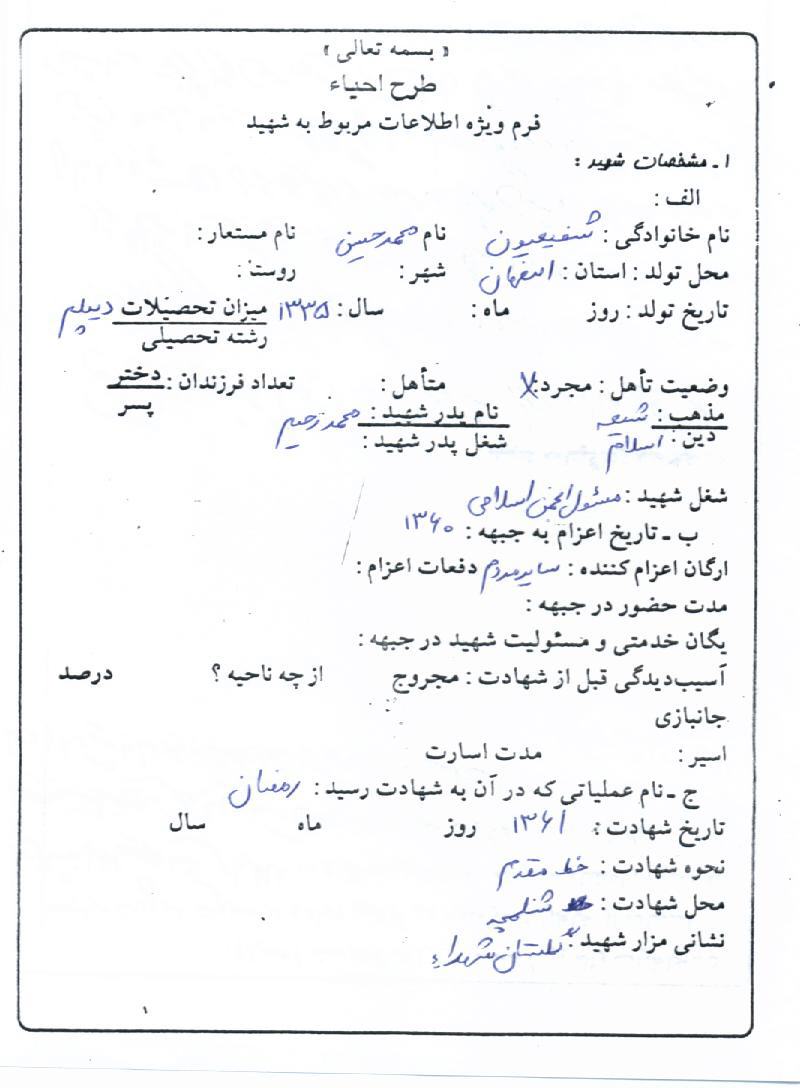 « بسمه تعالی »
طرح احیاء
فرم ویژه اطلاعات مربوط به شهید
۱ ـ مشخصات شهید :
الف :
نام خانوادگی : شفیعیون نام محمدحسین نام مستعار :
محل تولد : استان : اصفهان شهر : روستا :
تاریخ تولد : روز ماه : سال : ۱۳۳۵ میزان تحصیلات دیپلم
رشته تحصیلی
وضعیت تأهل : مجرد : متأهل : تعداد فرزندان : دختر
پسر
مذهب : شیعه نام پدر شهید : محمد رحیم
دین : اسلام شغل پدر شهید :
شغل شهید : مسئول انجمن اسلامی
ب ـ تاریخ اعزام به جبهه : ۱۳۶۰
ارگان اعزام کننده : سایر مردم دفعات اعزام :
مدت حضور در جبهه :
یگان خدمتی و مسئولیت شهید در جبهه :
آسیب‌دیدگی قبل از شهادت : مجروح از چه ناحیه ؟ درصد
جانبازی
اسیر : مدت اسارت
ج ـ نام عملیاتی که در آن به شهادت رسید : رمضان
تاریخ شهادت : ۱۳۶۱ روز ماه سال
نحوه شهادت : خط مقدم
محل شهادت : شلمچه
نشانی مزار شهید : گلستان شهداء
۱